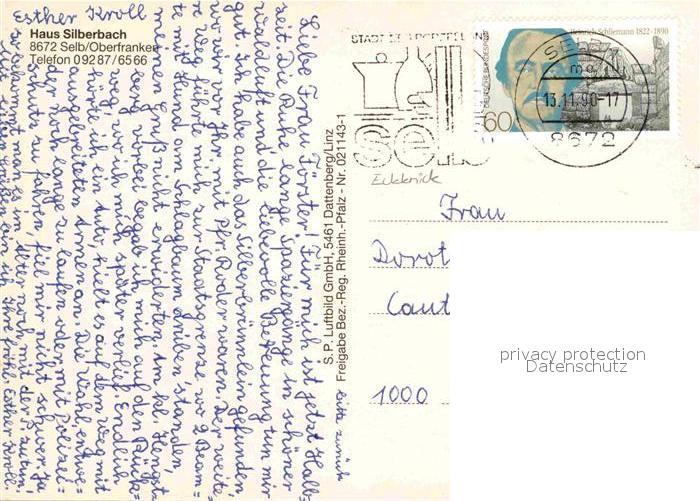 Esther Kroll
Haus Silberbach
8672 Selb/Oberfranken
Telefon 09287/6566
Liebe Frau Förster! Für mich ist jetzt Halb-
zeit. Die Ruhe, lange Spaziergänge in schöner
Waldluft und die liebevolle Betreuung tun mir
gut. Ich habe auch das Silberbrünnlein gefunden,
wo wir vor Jhr. mit Pfr. Roder waren. Der weite-
re Weg führte mich zur Staatsgrenze wo 2 Beam-
te mit Hund am Schlagbaum drüben standen,
meinen Gruß nicht erwiderten. Am kl. Hengst-
berg vorbei begab ich mich auf den Rück-
weg, wo ich mich später verlief. Endlich
hörte ich ein Auto, hielt es auf dem Weg mit
ausgebreiteten Armen an. Die Wahl, entwe-
der noch lange zu laufen oder mit Polizei-
schutz zu fahren fiel mir nicht schwer. Ja
so bekommt man es im Alter noch mit der P. zu tun.
grüßen Sie Ihre fröhl. Esther Kroll.
bitte zurück
S.P. Luftbild GmbH, 5461 Dattenberg/Linz
Freigabe Bez.-Reg. Rheinh.-Pfalz - Nr. 021143-1
STADT DES PORZELLANS
selb
Heinrich Schliemann 1822-1890
DEUTSCHE BUNDESPOST
60
SEL
mc
13.11.90-17
8672
Frau
Dorot
Caut
1000
privacy protection
Datenschutz